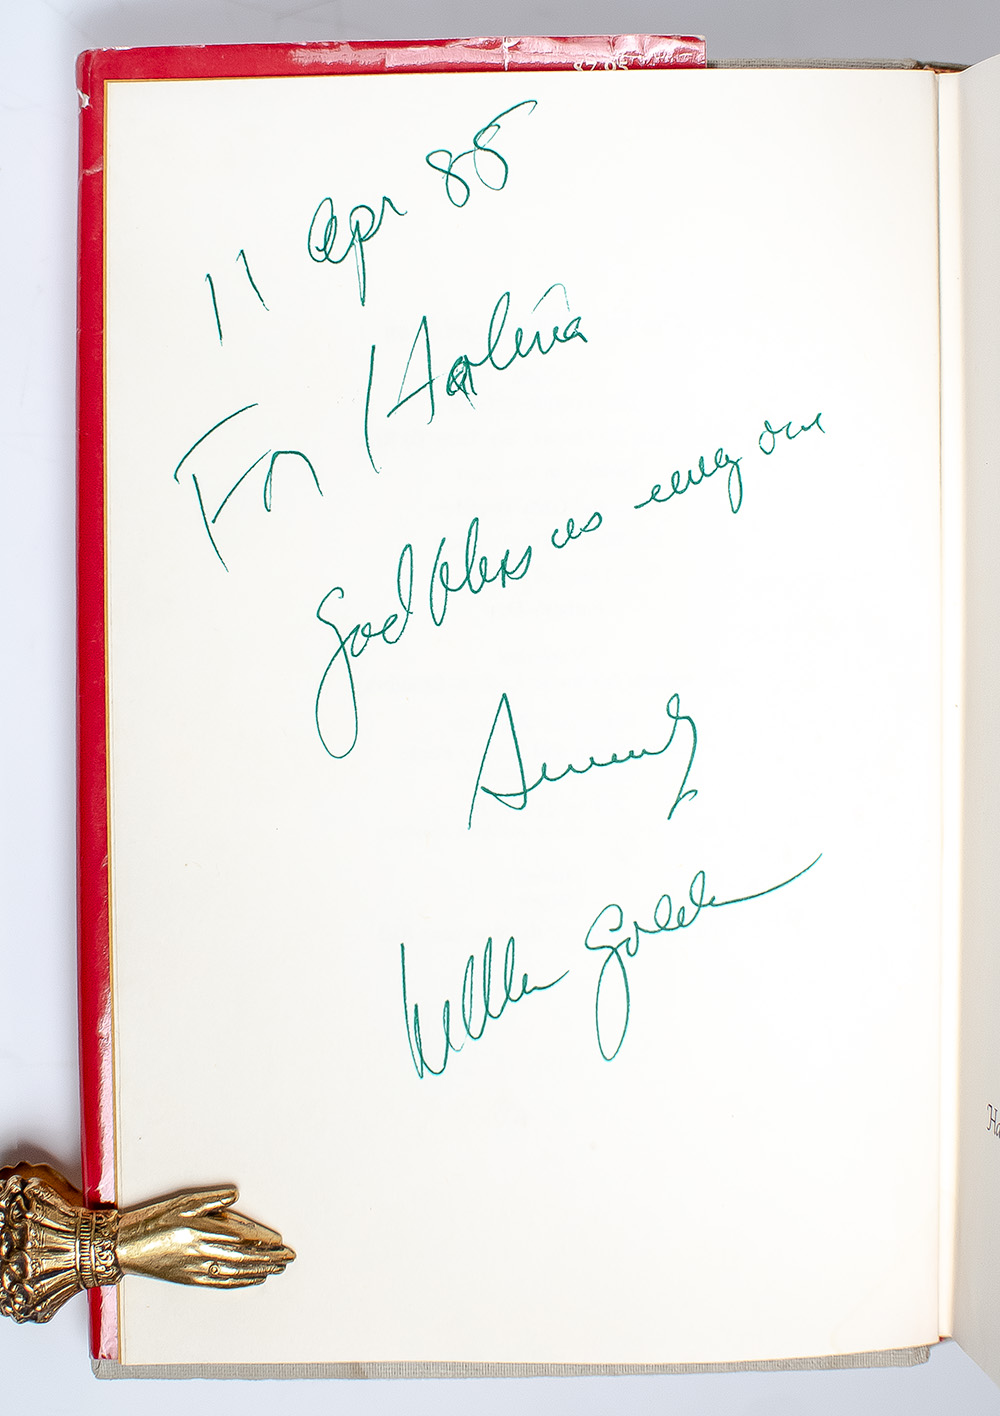 $7.95
11 Apr 88
For Halina
God bless us every one
Sincerely
William Goldman
Ha